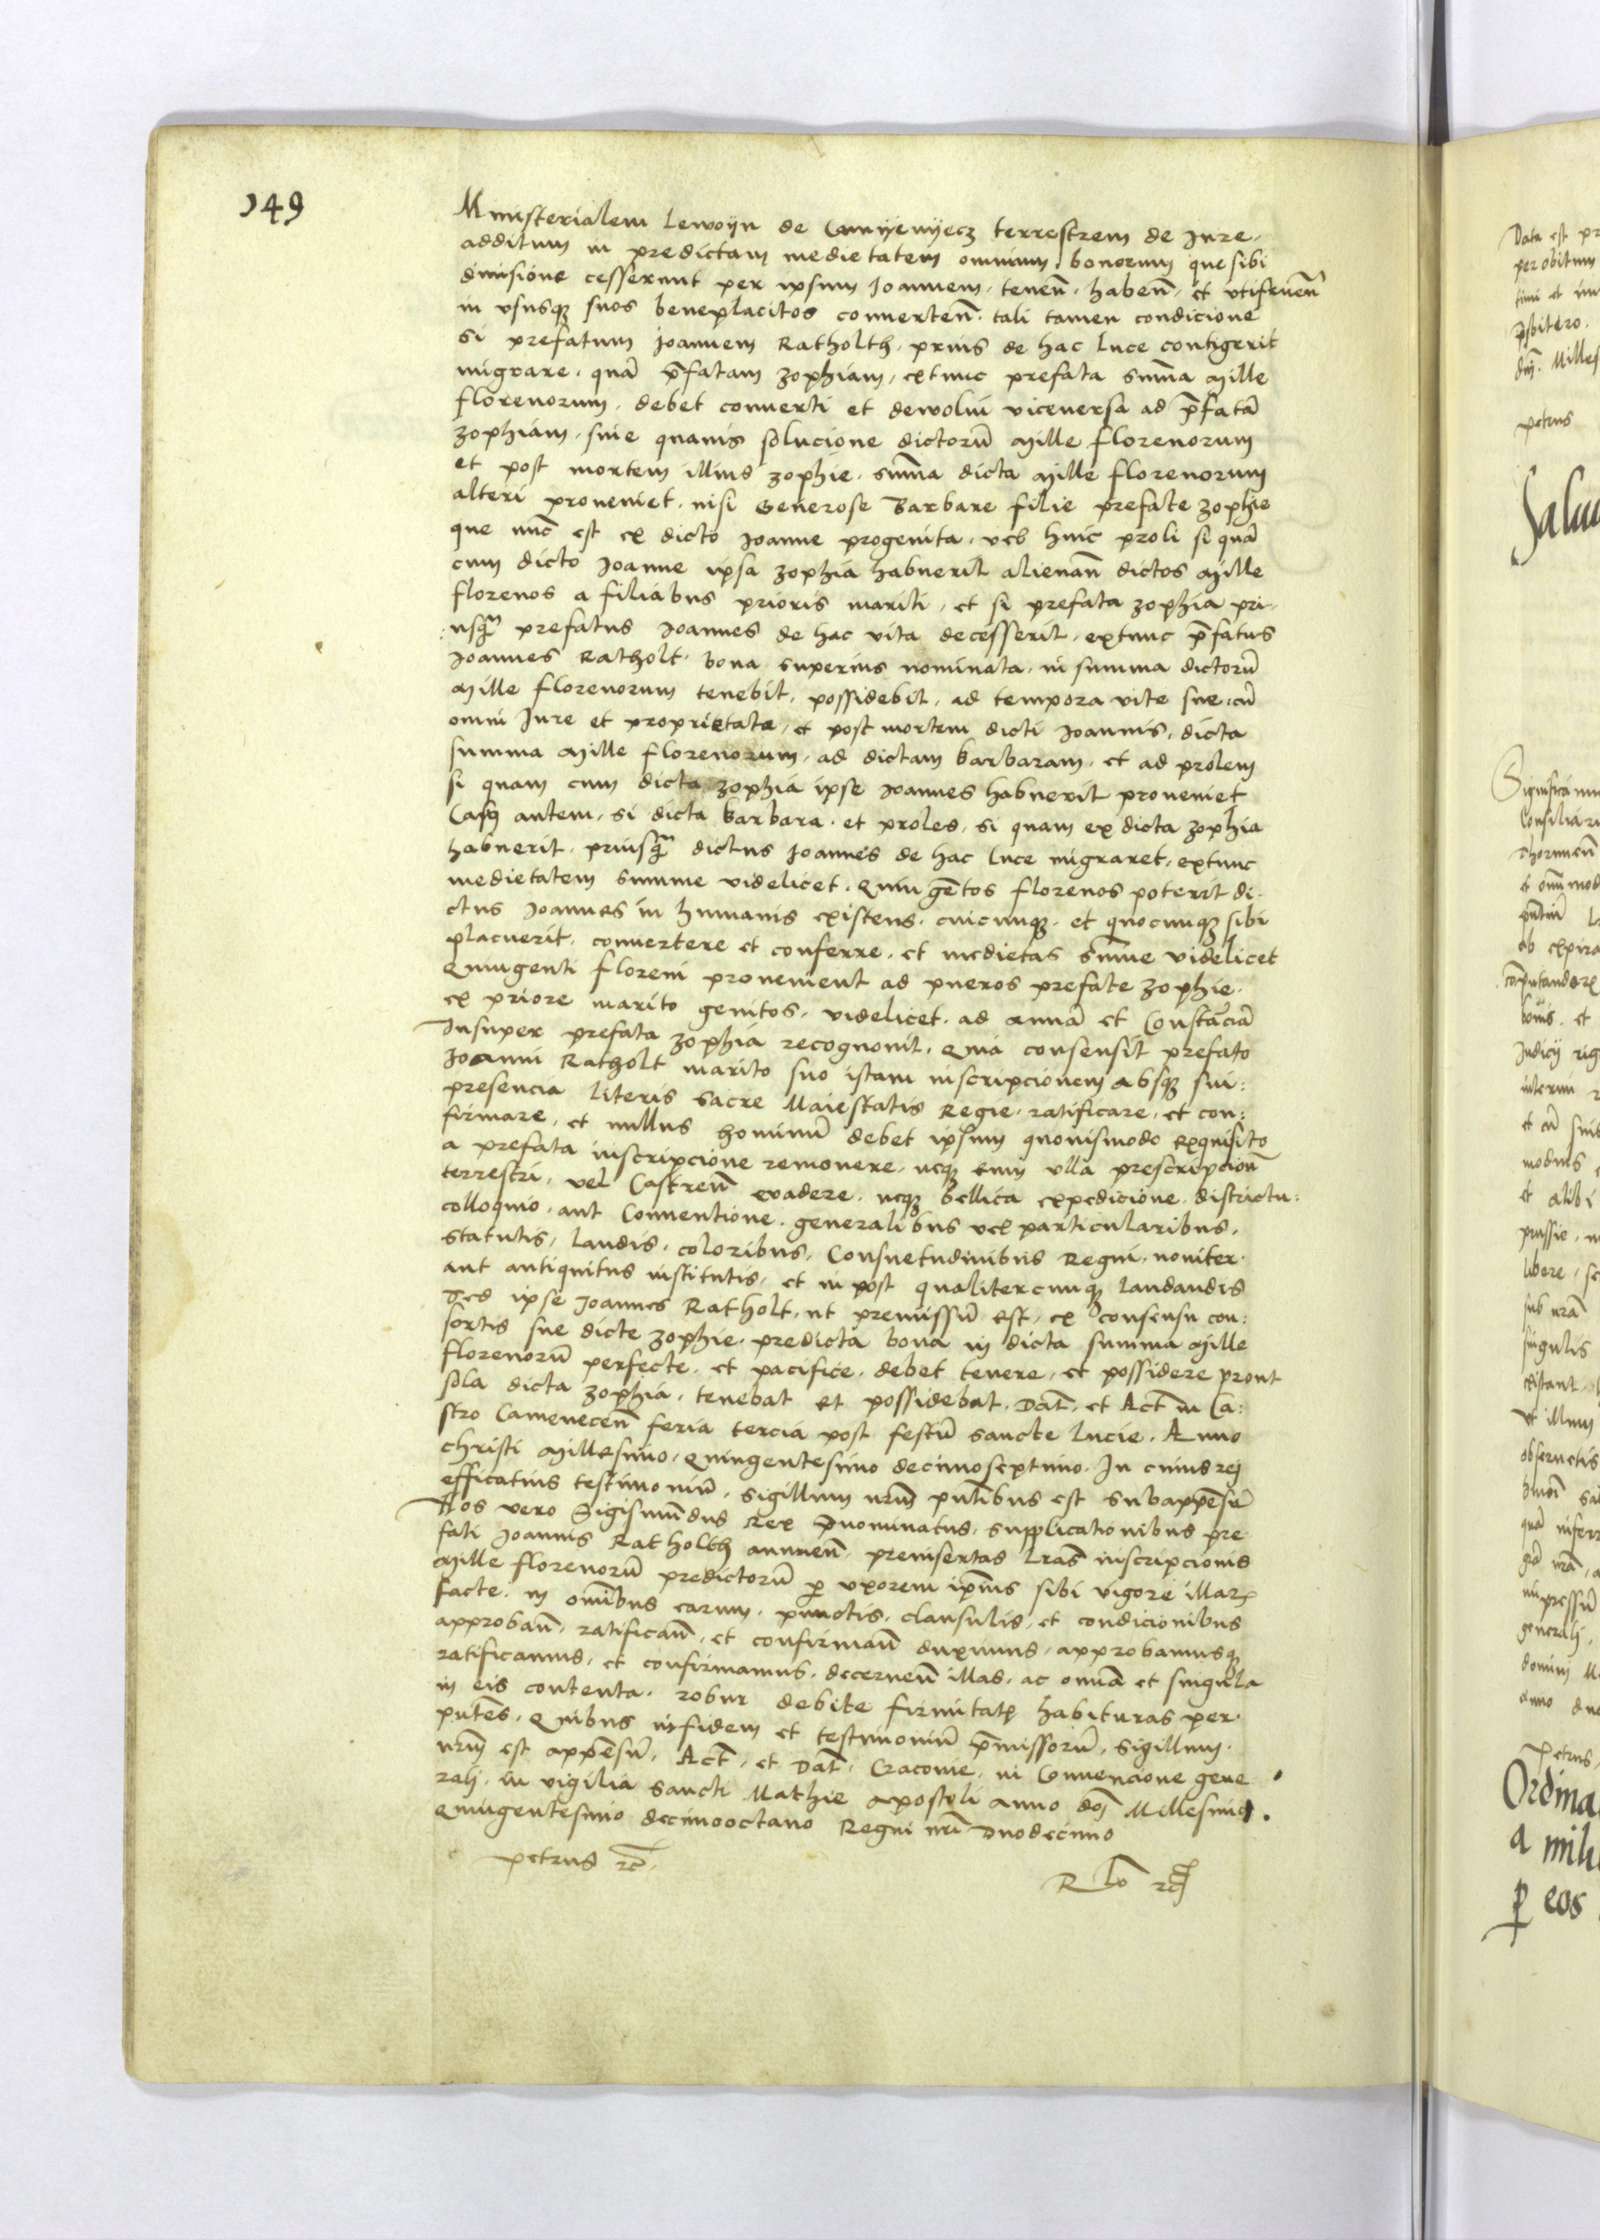 149
Ministerialem Lewoyn de Camyenyecz terrestrem de Iure
additum in predictam medietatem omnium bonorum que sibi
divisione cesserunt per ipsum Joannem, tenen̄, haben̄, et utifruen̄
in ususq; suos beneplacitos converten̄. tali tamen condicione
si prefatum Joannem Ratholth, prius de hac luce contigerit
migrare, quā p̄fatam Zophiam, extunc prefata sum̄a Mille
florenorum, debet converti et dewolui viceversa ad p̄fatā
Zophiam, sine quavis solucione dictorū Mille florenorum
et post mortem illius Zophie, sum̄a dicta Mille florenorum
alteri proveniet, nisi Generose Barbare filie prefate Zophie
que nūc est ex dicto Joanne progenita, vel huic proli si quā
cum dicto Joanne ipsa Zophia habuerit alienan̄ dictos Mille
florenos a filiabus prioris mariti, et si prefata Zophia pri-
:usq̄ prefatus Joannes de hac vita decesserit, extunc p̄fatus
Joannes Ratholt bona superius nominata, in summa dictorū
Mille florenorum tenebit, possidebit, ad tempora vite sue, cū
omni Iure et proprietate, et post mortem dicti Joannis, dicta
summa Mille florenorum, ad dictam Barbaram, et ad prolem
si quam cum dicta Zophia ipse Joannes habuerit proveniet
Casu autem, si dicta Barbara, et proles, si quam ex dicta Zophia
habuerit, priusq̄ dictus Joannes de hac luce migraret, extunc
medietatem summe videlicet, Quingētos florenos poterit di-
ctus Joannes in humanis existens, cuicunq;, et quocunq; sibi
placuerit, convertere et conferre, et medietas sum̄e videlicet
Quingenti floreni provenient ad pueros prefate Zophie,
ex priore marito genitos, videlicet, ad Annā et Constāciā
Insuper prefata Zophia recognovit, Quia consensit prefato
Joanni Ratholt marito suo istam inscripcionem absq; sui:
presencia literis Sacre Maiestatis Regie, ratificare, et con:
firmare, et nullus hominū debet ipsum quovismodo exquisito
a prefata inscripcione removere, neq; enim ulla prescripcion̄
terrestri, vel Castren̄ evadere, neq; bellica expedicione, districtu:
colloquio, aut Conventione, generalibus vel particularibus,
statutis, laudis, coloribus, Consuetudinibus Regni, noviter
aut antiquitus institutis, et in post qualitercunq; laudandis
Sed ipse Joannes Ratholt, ut premissū est, ex consensu con:
sortis sue dicte Zophie, predicta bona in dicta summa Mille
florenorū perfecte, et pacifice, debet tenere, et possidere prout
sola dicta Zophia, tenebat et possidebat, Dat̄, et Act̄ in Ca:
stro Camenecen̄ feria tercia post festū Sancte Lucie, Anno
Christi Millesimo, Quingentesimo decimoseptimo. In cuius rei
efficatius testimoniū, sigillum nrūm pn̄tibus est subappēsū
Nos vero Sigismūdus Rex p̄nominatus, supplicationibus pre
fati Joannis Ratholth annuen̄, preinsertas lrās inscripcionis
Mille florenorū predictorū p uxorem ip̄ius sibi vigore illarꝝ
facte, in om̄ibus earum, punctis, clausulis, et condicionibus
approban̄, ratifican̄, et confirman̄ duximus, approbamusq;
ratificamus, et confirmamus, decernen̄ illas, ac omnia et singula
in eis contenta, robur debite firmitatꝭ habituras per-
pn̄tes, Quibus in fidem et testimoniū p̄missorū, Sigillum
nrūm est appēsū, Act̄, et Dat̄, Cracovie, in Convencione gene
rali, In vigilia Sancti Mathie apostoli anno dn̄i Millesimo
Quingentesimo decimooctavo Regni nr̄i Duodecimo
Petrus